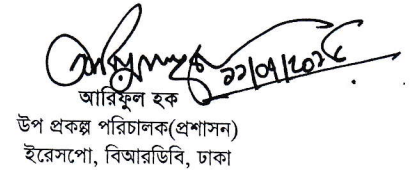 আরিফুল হক
উপ প্রকল্প পরিচালক(প্রশাসন)
ইরেসপো, বিআরডিবি, ঢাকা